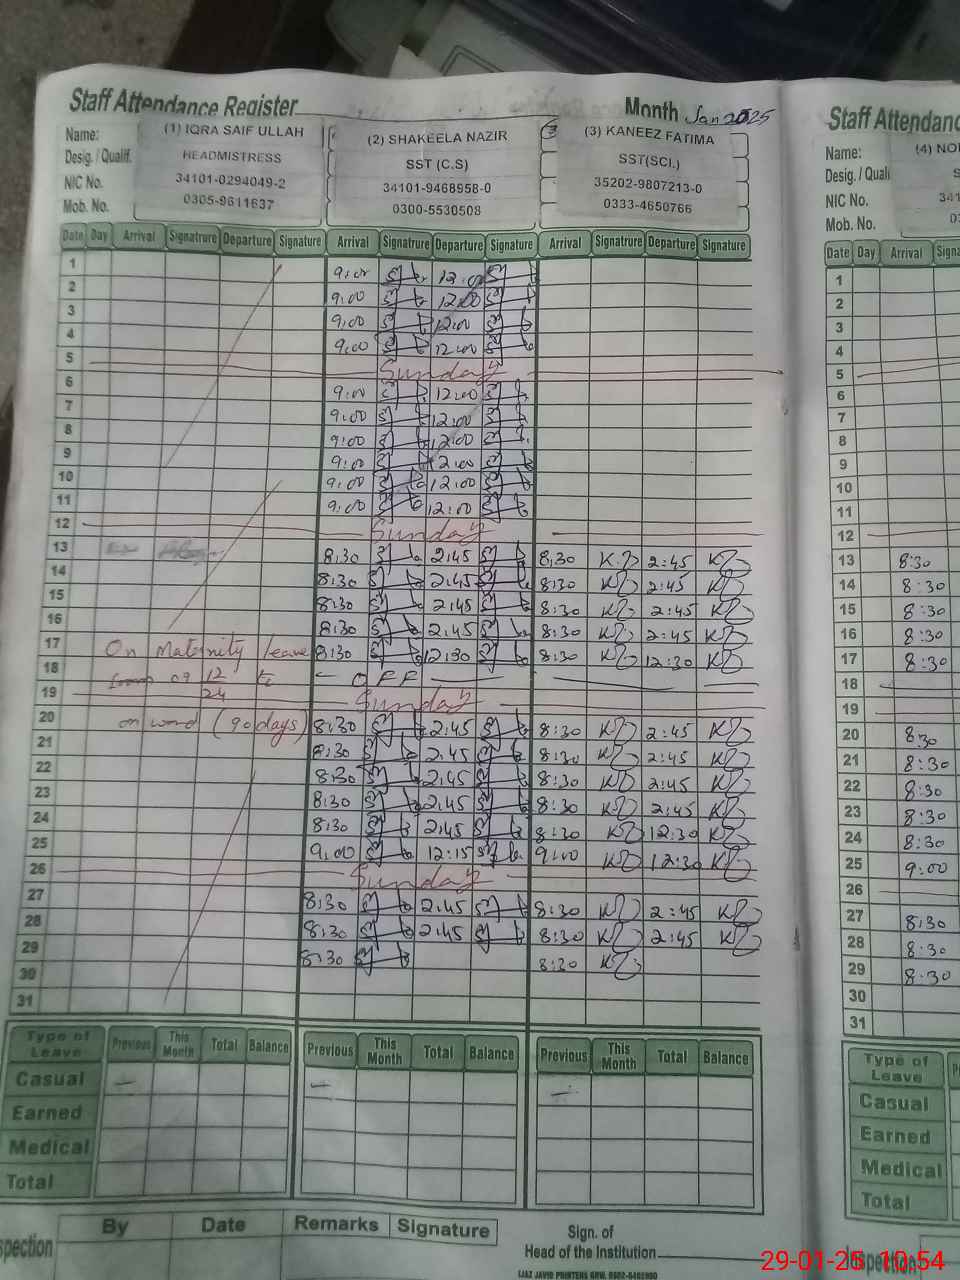 Staff Attendance Register
Month Jan 2025
Name: (1) IQRA SAIF ULLAH (2) SHAKEELA NAZIR (3) KANEEZ FATIMA
Desig. / Qualif. HEADMISTRESS SST (C.S) SST(SCI.)
NIC No. 34101-0294049-2 34101-9468958-0 35202-9807213-0
Mob. No. 0305-9611637 0300-5530508 0333-4650766
Date Day Arrival Signatrure Departure Signature Arrival Signatrure Departure Signature Arrival Signatrure Departure Signature
1 9:00 12:00
2 9:00 12:00
3 9:00 12:00
4 9:00 12:00
5 Sunday
6 9:00 12:00
7 9:00 12:00
8 9:00 12:00
9 9:00 12:00
10 9:00 12:00
11 9:00 12:00
12 Sunday
13 8:30 2:45 8:30 2:45
14 8:30 2:45 8:30 2:45
15 8:30 2:45 8:30 2:45
16 8:30 2:45 8:30 2:45
17 On Maternity leave 8:30 12:30 8:30 12:30
18 09 12 to OFF
19 24 Sunday
20 onword (90 days) 8:30 2:45 8:30 2:45
21 8:30 2:45 8:30 2:45
22 8:30 2:45 8:30 2:45
23 8:30 2:45 8:30 2:45
24 8:30 2:45 8:30 12:30
25 9:00 12:15 9:00 12:30
26 Sunday
27 8:30 2:45 8:30 2:45
28 8:30 2:45 8:30 2:45
29 8:30 8:30
30
31
Type of Leave Previous This Month Total Balance Previous This Month Total Balance Previous This Month Total Balance
Casual
Earned
Medical
Total
By Date Remarks Signature
Sign. of
Head of the Institution
IJAZ JAVID PRINTERS GRW.
Staff Attendanc
Name: (4)
Desig. / Quali
NIC No. 341
Mob. No.
Date Day Arrival
1
2
3
4
5
6
7
8
9
10
11
12
13 8:30
14 8:30
15 8:30
16 8:30
17 8:30
18
19
20 8:30
21 8:30
22 8:30
23 8:30
24 8:30
25 9:00
26
27 8:30
28 8:30
29 8:30
30
31
Type of Leave
Casual
Earned
Medical
Total
29-01-25 10:54